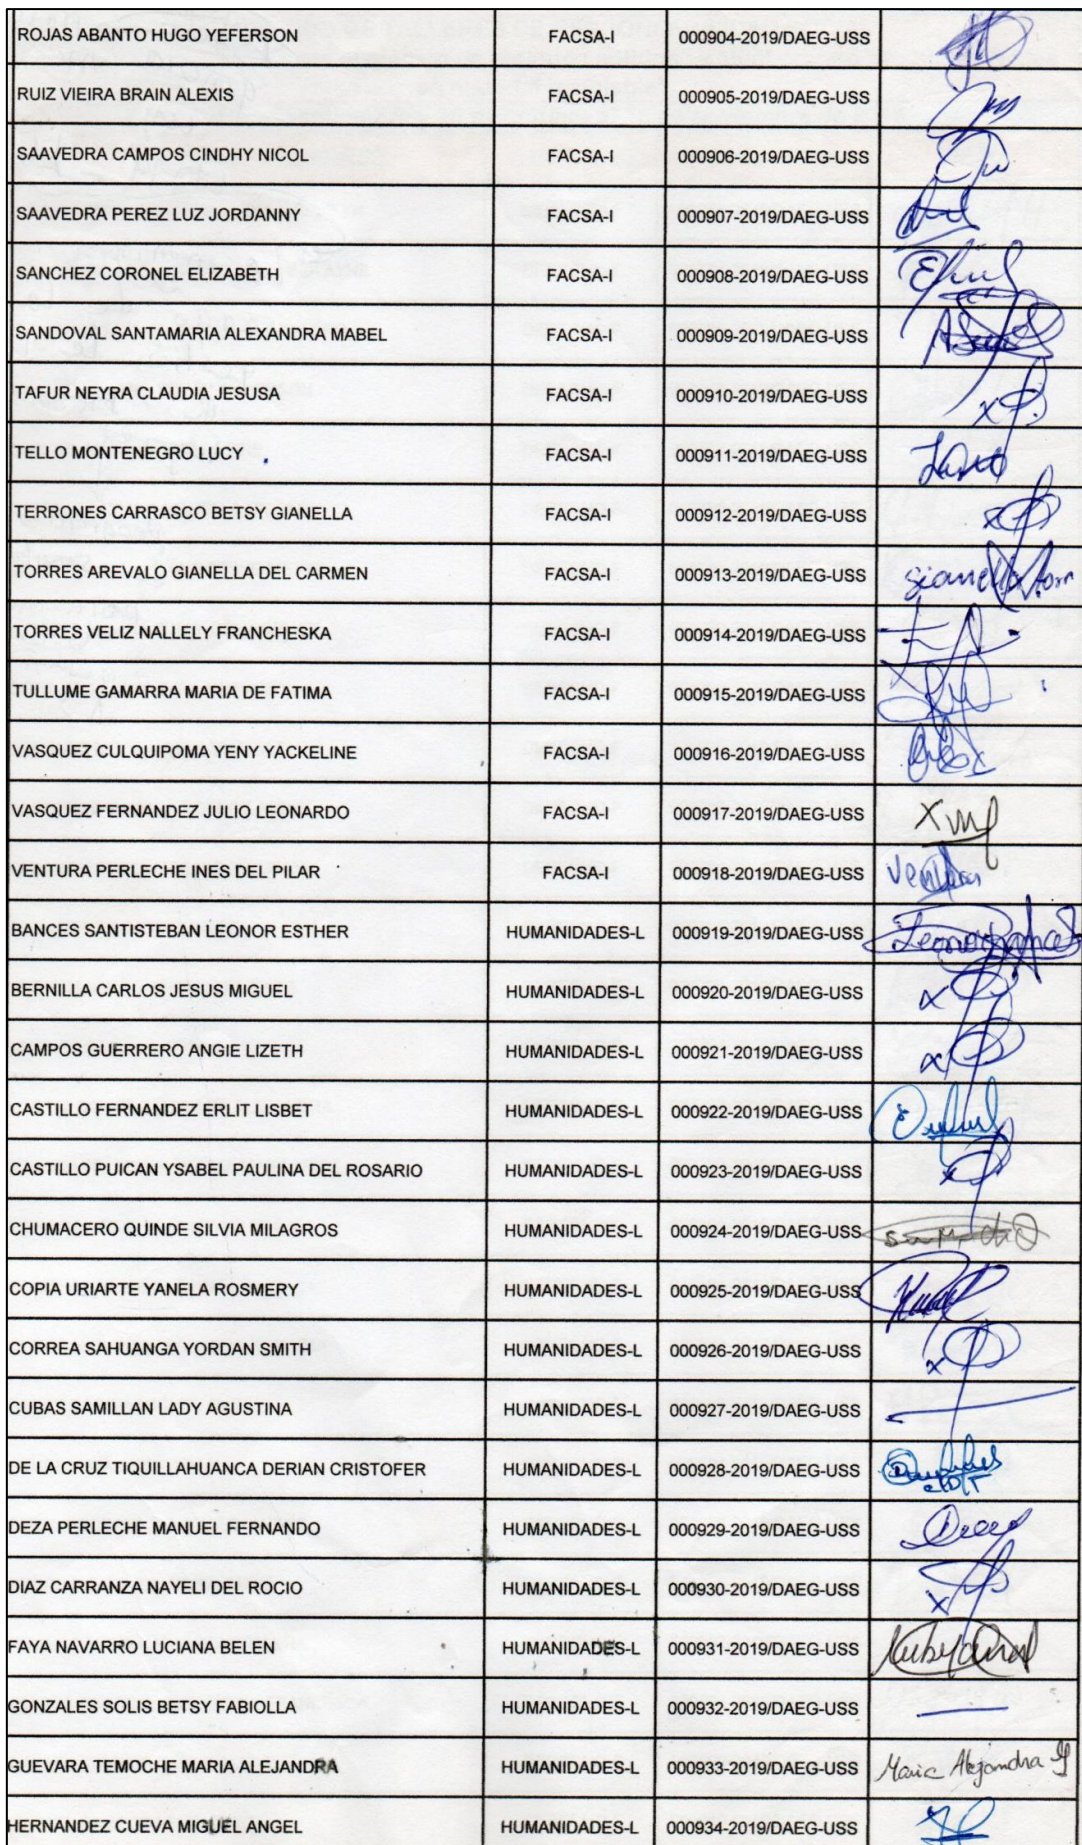 ROJAS ABANTO HUGO YEFERSON FACSA-I 000904-2019/DAEG-USS
RUIZ VIEIRA BRAIN ALEXIS FACSA-I 000905-2019/DAEG-USS
SAAVEDRA CAMPOS CINDHY NICOL FACSA-I 000906-2019/DAEG-USS
SAAVEDRA PEREZ LUZ JORDANNY FACSA-I 000907-2019/DAEG-USS
SANCHEZ CORONEL ELIZABETH FACSA-I 000908-2019/DAEG-USS
SANDOVAL SANTAMARIA ALEXANDRA MABEL FACSA-I 000909-2019/DAEG-USS
TAFUR NEYRA CLAUDIA JESUSA FACSA-I 000910-2019/DAEG-USS
TELLO MONTENEGRO LUCY FACSA-I 000911-2019/DAEG-USS
TERRONES CARRASCO BETSY GIANELLA FACSA-I 000912-2019/DAEG-USS
TORRES AREVALO GIANELLA DEL CARMEN FACSA-I 000913-2019/DAEG-USS
TORRES VELIZ NALLELY FRANCHESKA FACSA-I 000914-2019/DAEG-USS
TULLUME GAMARRA MARIA DE FATIMA FACSA-I 000915-2019/DAEG-USS
VASQUEZ CULQUIPOMA YENY YACKELINE FACSA-I 000916-2019/DAEG-USS
VASQUEZ FERNANDEZ JULIO LEONARDO FACSA-I 000917-2019/DAEG-USS
VENTURA PERLECHE INES DEL PILAR FACSA-I 000918-2019/DAEG-USS
BANCES SANTISTEBAN LEONOR ESTHER HUMANIDADES-L 000919-2019/DAEG-USS
BERNILLA CARLOS JESUS MIGUEL HUMANIDADES-L 000920-2019/DAEG-USS
CAMPOS GUERRERO ANGIE LIZETH HUMANIDADES-L 000921-2019/DAEG-USS
CASTILLO FERNANDEZ ERLIT LISBET HUMANIDADES-L 000922-2019/DAEG-USS
CASTILLO PUICAN YSABEL PAULINA DEL ROSARIO HUMANIDADES-L 000923-2019/DAEG-USS
CHUMACERO QUINDE SILVIA MILAGROS HUMANIDADES-L 000924-2019/DAEG-USS
COPIA URIARTE YANELA ROSMERY HUMANIDADES-L 000925-2019/DAEG-USS
CORREA SAHUANGA YORDAN SMITH HUMANIDADES-L 000926-2019/DAEG-USS
CUBAS SAMILLAN LADY AGUSTINA HUMANIDADES-L 000927-2019/DAEG-USS
DE LA CRUZ TIQUILLAHUANCA DERIAN CRISTOFER HUMANIDADES-L 000928-2019/DAEG-USS
DEZA PERLECHE MANUEL FERNANDO HUMANIDADES-L 000929-2019/DAEG-USS
DIAZ CARRANZA NAYELI DEL ROCIO HUMANIDADES-L 000930-2019/DAEG-USS
FAYA NAVARRO LUCIANA BELEN HUMANIDADES-L 000931-2019/DAEG-USS
GONZALES SOLIS BETSY FABIOLLA HUMANIDADES-L 000932-2019/DAEG-USS
GUEVARA TEMOCHE MARIA ALEJANDRA HUMANIDADES-L 000933-2019/DAEG-USS Maria Alejandra G
HERNANDEZ CUEVA MIGUEL ANGEL HUMANIDADES-L 000934-2019/DAEG-USS